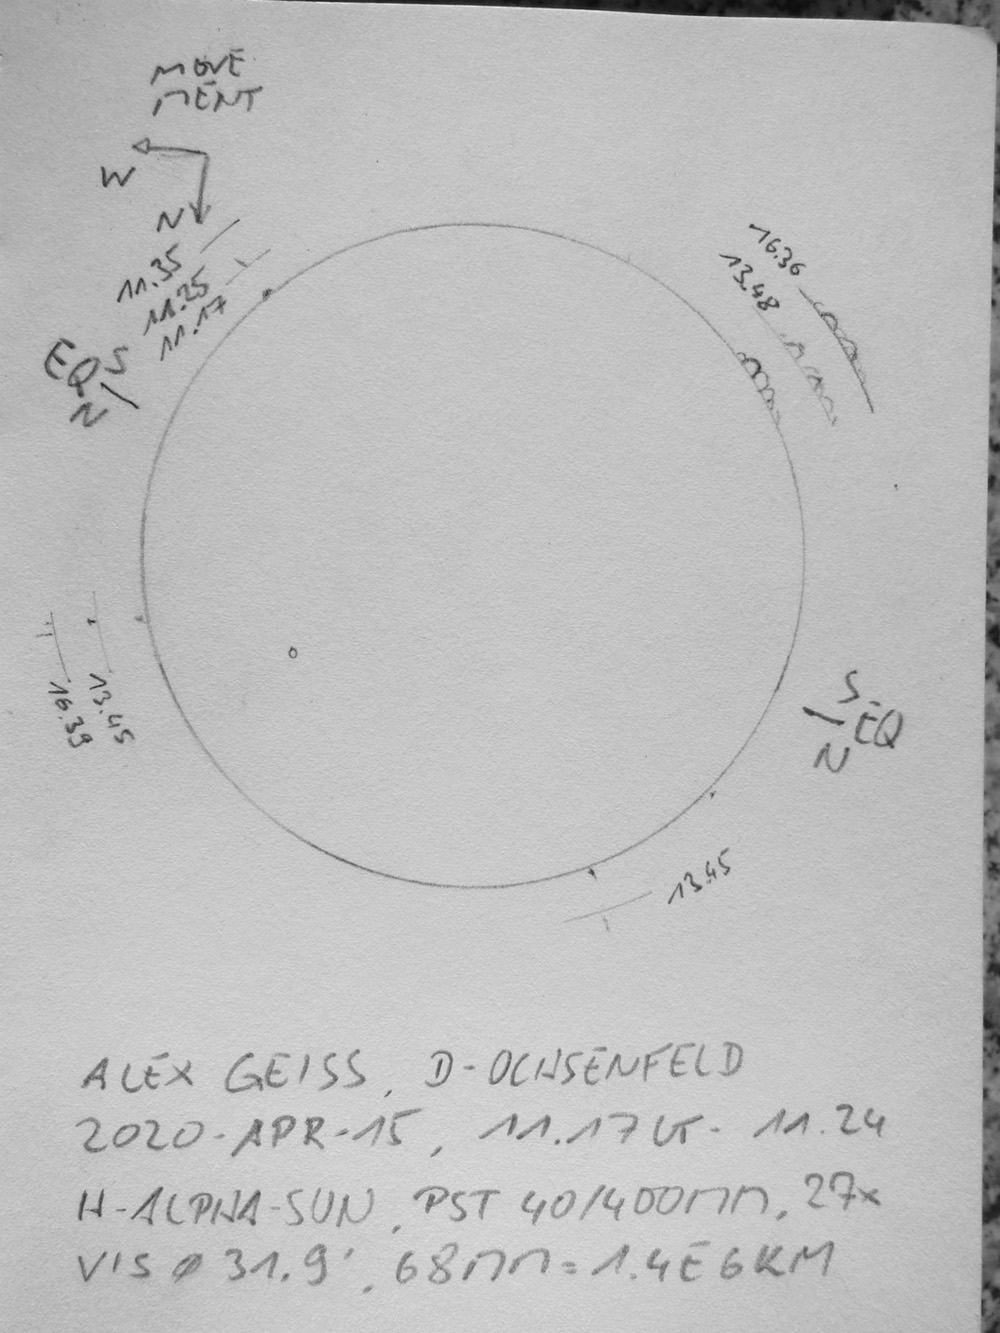 MOVE
MENT
W
N
11.35
11.25
11.17
EQ S
N
16.36
13.48
13.45
16.39
S
EQ
N
13.45
ALEX GEISS, D-OCHSENFELD
2020-APR-15, 11.17UT-11.24
H-ALPHA-SUN, PST 40/400MM, 27x
VIS ø 31.9', 68MM=1.4E6KM